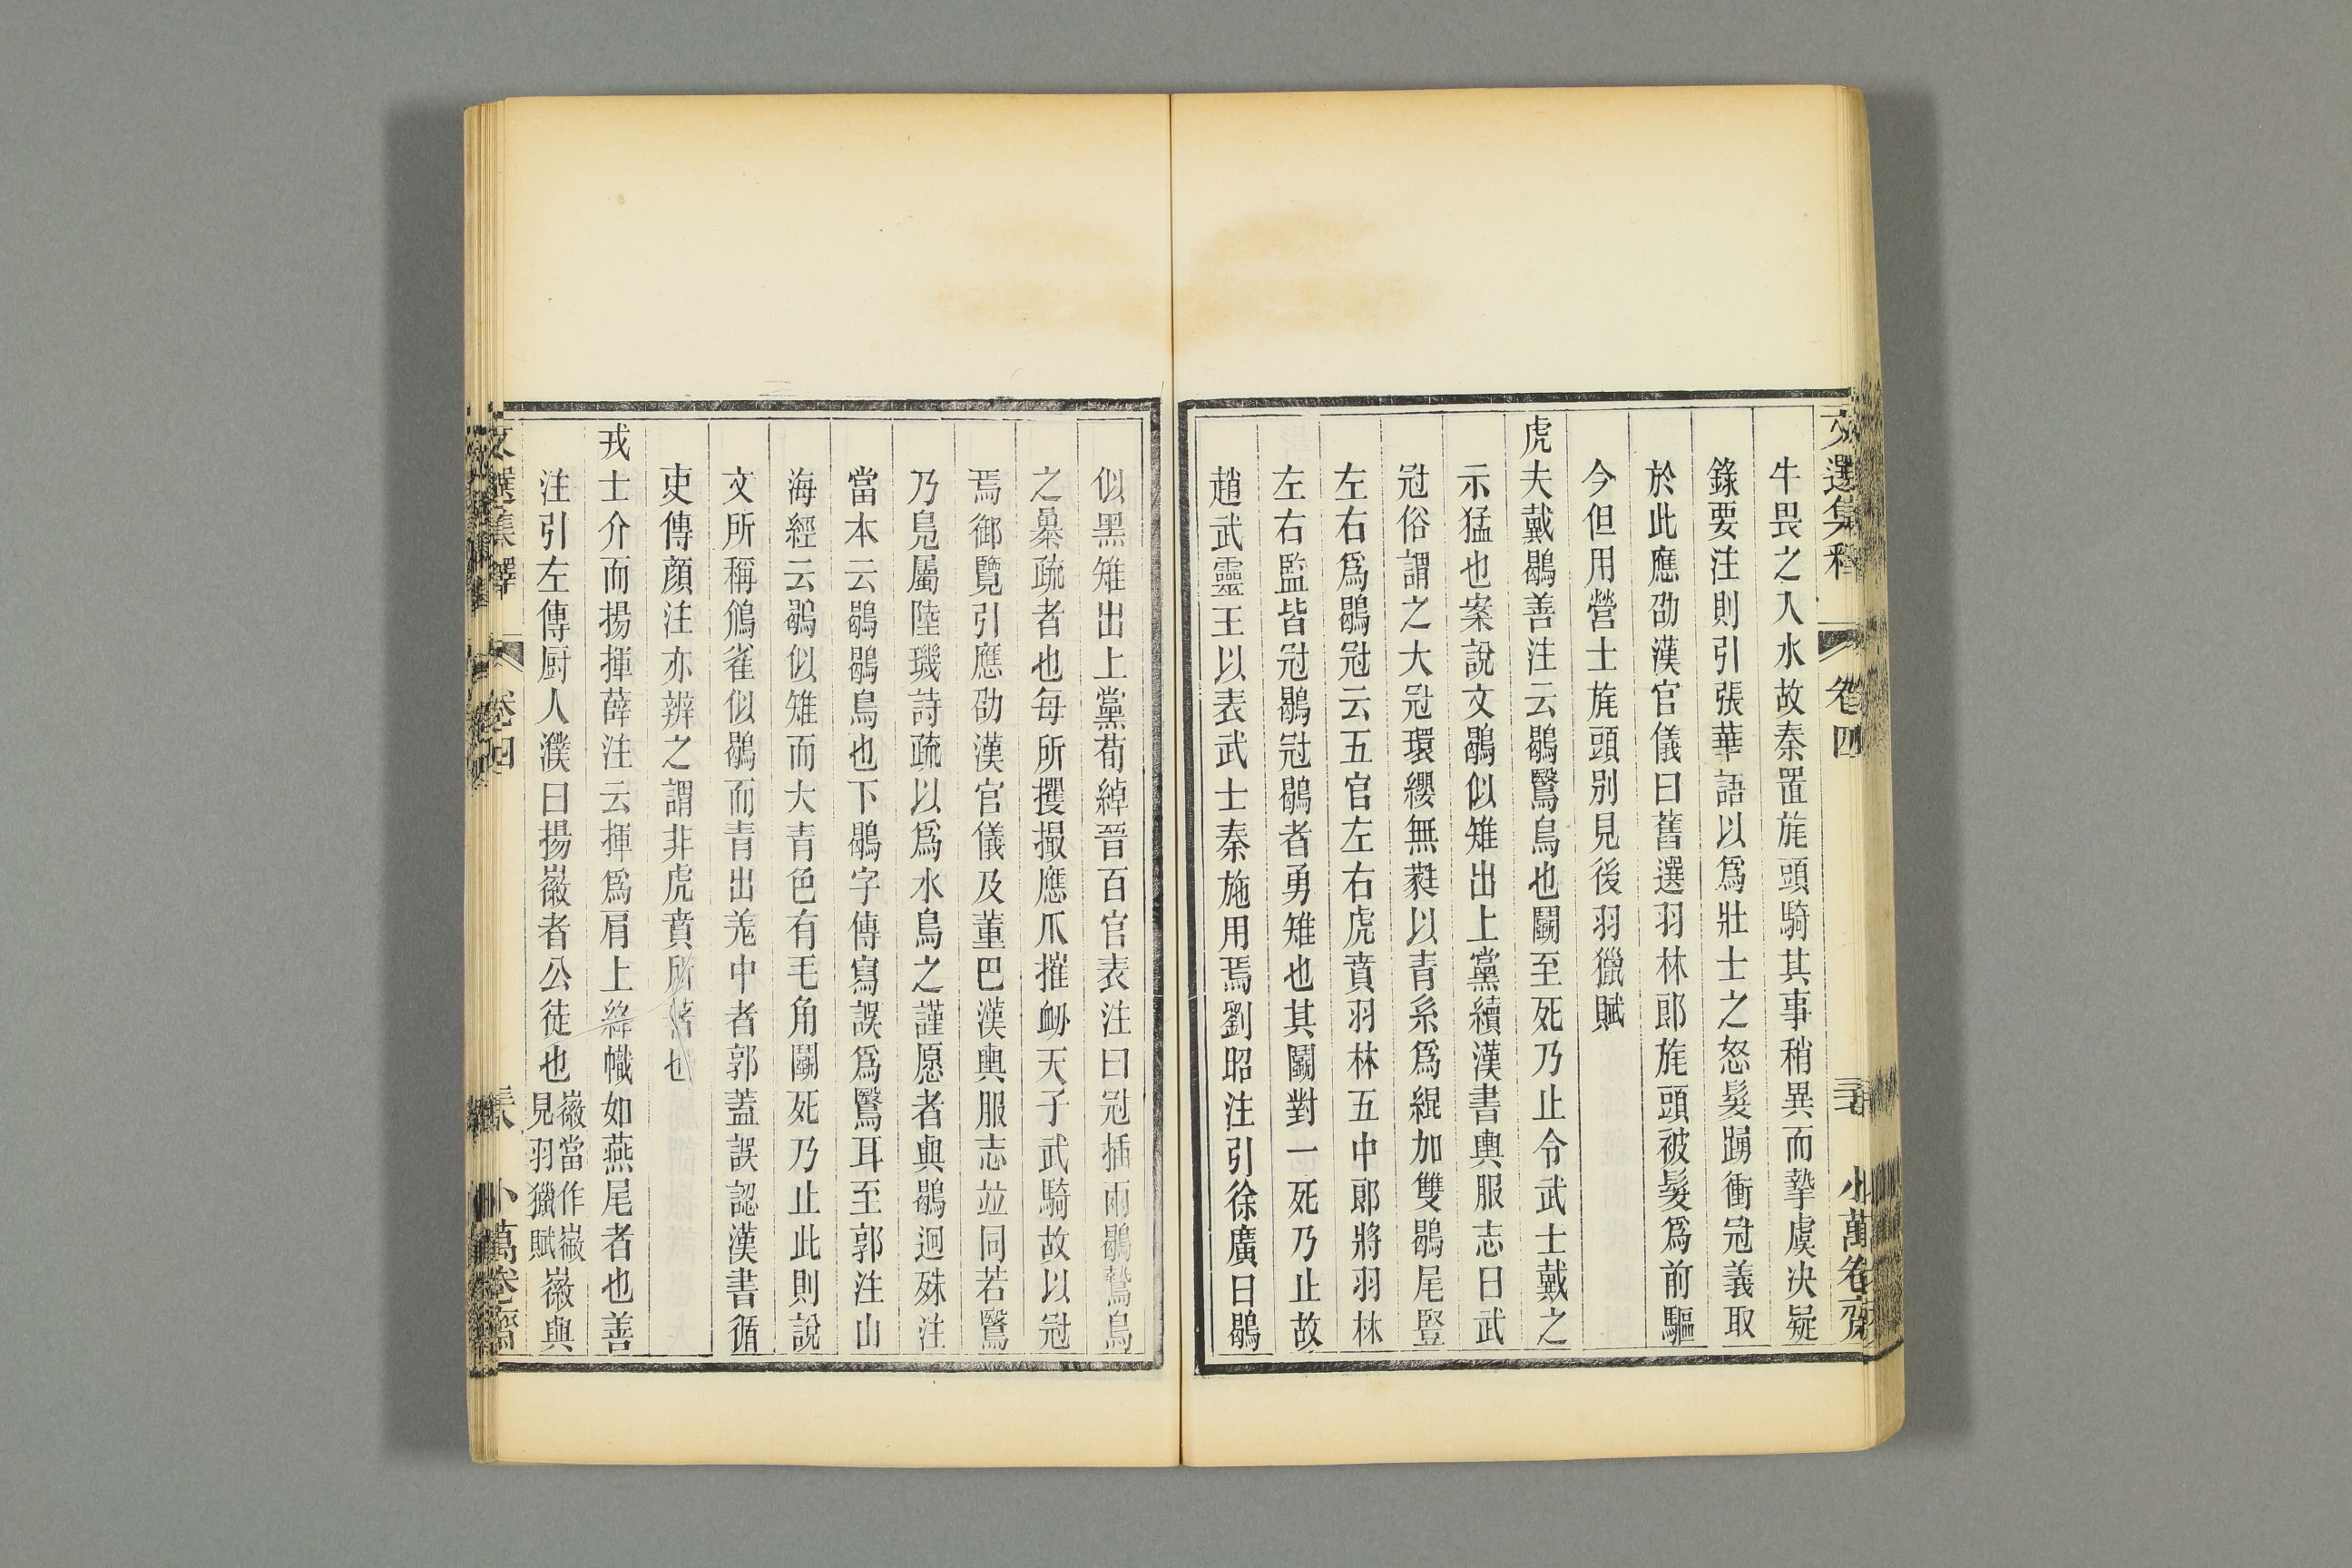 文選集釋 卷四 三七 小萬卷齋
牛畏之入水故秦置旄頭騎其事稍異而摯虞决疑
錄要注則引張華語以爲壯士之怒髮踴衝冠義取
於此應劭漢官儀曰舊選羽林郎旄頭被髮爲前驅
今但用營士旄頭別見後羽獵賦
虎夫戴鶡善注云鶡鷖鳥也鬬至死乃止令武士戴之
示猛也案說文鶡似雉出上黨續漢書輿服志曰武
冠俗謂之大冠環纓無蕤以青系爲緄加雙鶡尾豎
左右爲鶡冠云五官左右虎賁羽林五中郎將羽林
左右監皆冠鶡冠鶡者勇雉也其鬬對一死乃止故
趙武靈王以表武士秦施用焉劉昭注引徐廣曰鶡
似黑雉出上黨荀綽晉百官表注曰冠插兩鶡鷙鳥
之暴疏者也每所攫撮應爪摧衂天子武騎故以冠
焉御覽引應劭漢官儀及董巴漢輿服志竝同若鷖
乃鳧屬陸璣詩疏以爲水鳥之謹愿者與鶡迥殊注
當本云鶡鶡鳥也下鶡字傳寫誤爲鷖耳至郭注山
海經云鶡似雉而大青色有毛角鬬死乃止此則說
文所稱鳻雀似鶡而青出羌中者郭蓋誤認漢書循
吏傳顔注亦辨之謂非虎賁所著也
戎士介而揚揮薛注云揮爲肩上絳幟如燕尾者也善
注引左傳厨人濮曰揚徽者公徒也徽當作㣲見羽獵賦徽與
文選集釋 卷四 三八 小萬卷齋